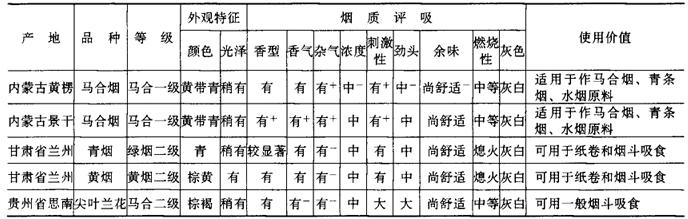 产地 品种 等级 外观特征 烟质评吸 使用价值
颜色 光泽 香型 香气 杂气 浓度 刺激性 劲头 余味 燃烧性 灰色
内蒙古黄楞 马合烟 马合一级 黄带青 稍有 有 有 有+ 中- 有+ 中- 尚舒适- 中等 灰白 适用于作马合烟、青条烟、水烟原料
内蒙古景干 马合烟 马合一级 黄带青 稍有 有+ 有+ 有+ 中 有+ 中 尚舒适 中等 灰白 适用于作马合烟、青条烟、水烟原料
甘肃省兰州 青烟 绿烟二级 青 稍有 较显著 有 有- 中 有 中 尚舒适 熄火 灰白 可用于纸卷和烟斗吸食
甘肃省兰州 黄烟 黄烟二级 棕黄 有 有 有 有- 中 有 中 尚舒适 熄火 灰白 可用于纸卷和烟斗吸食
贵州省思南 尖叶兰花 马合二级 棕褐 稍有 有 有- 有- 中 大 大 尚舒适 中等 灰白 可用一般烟斗吸食